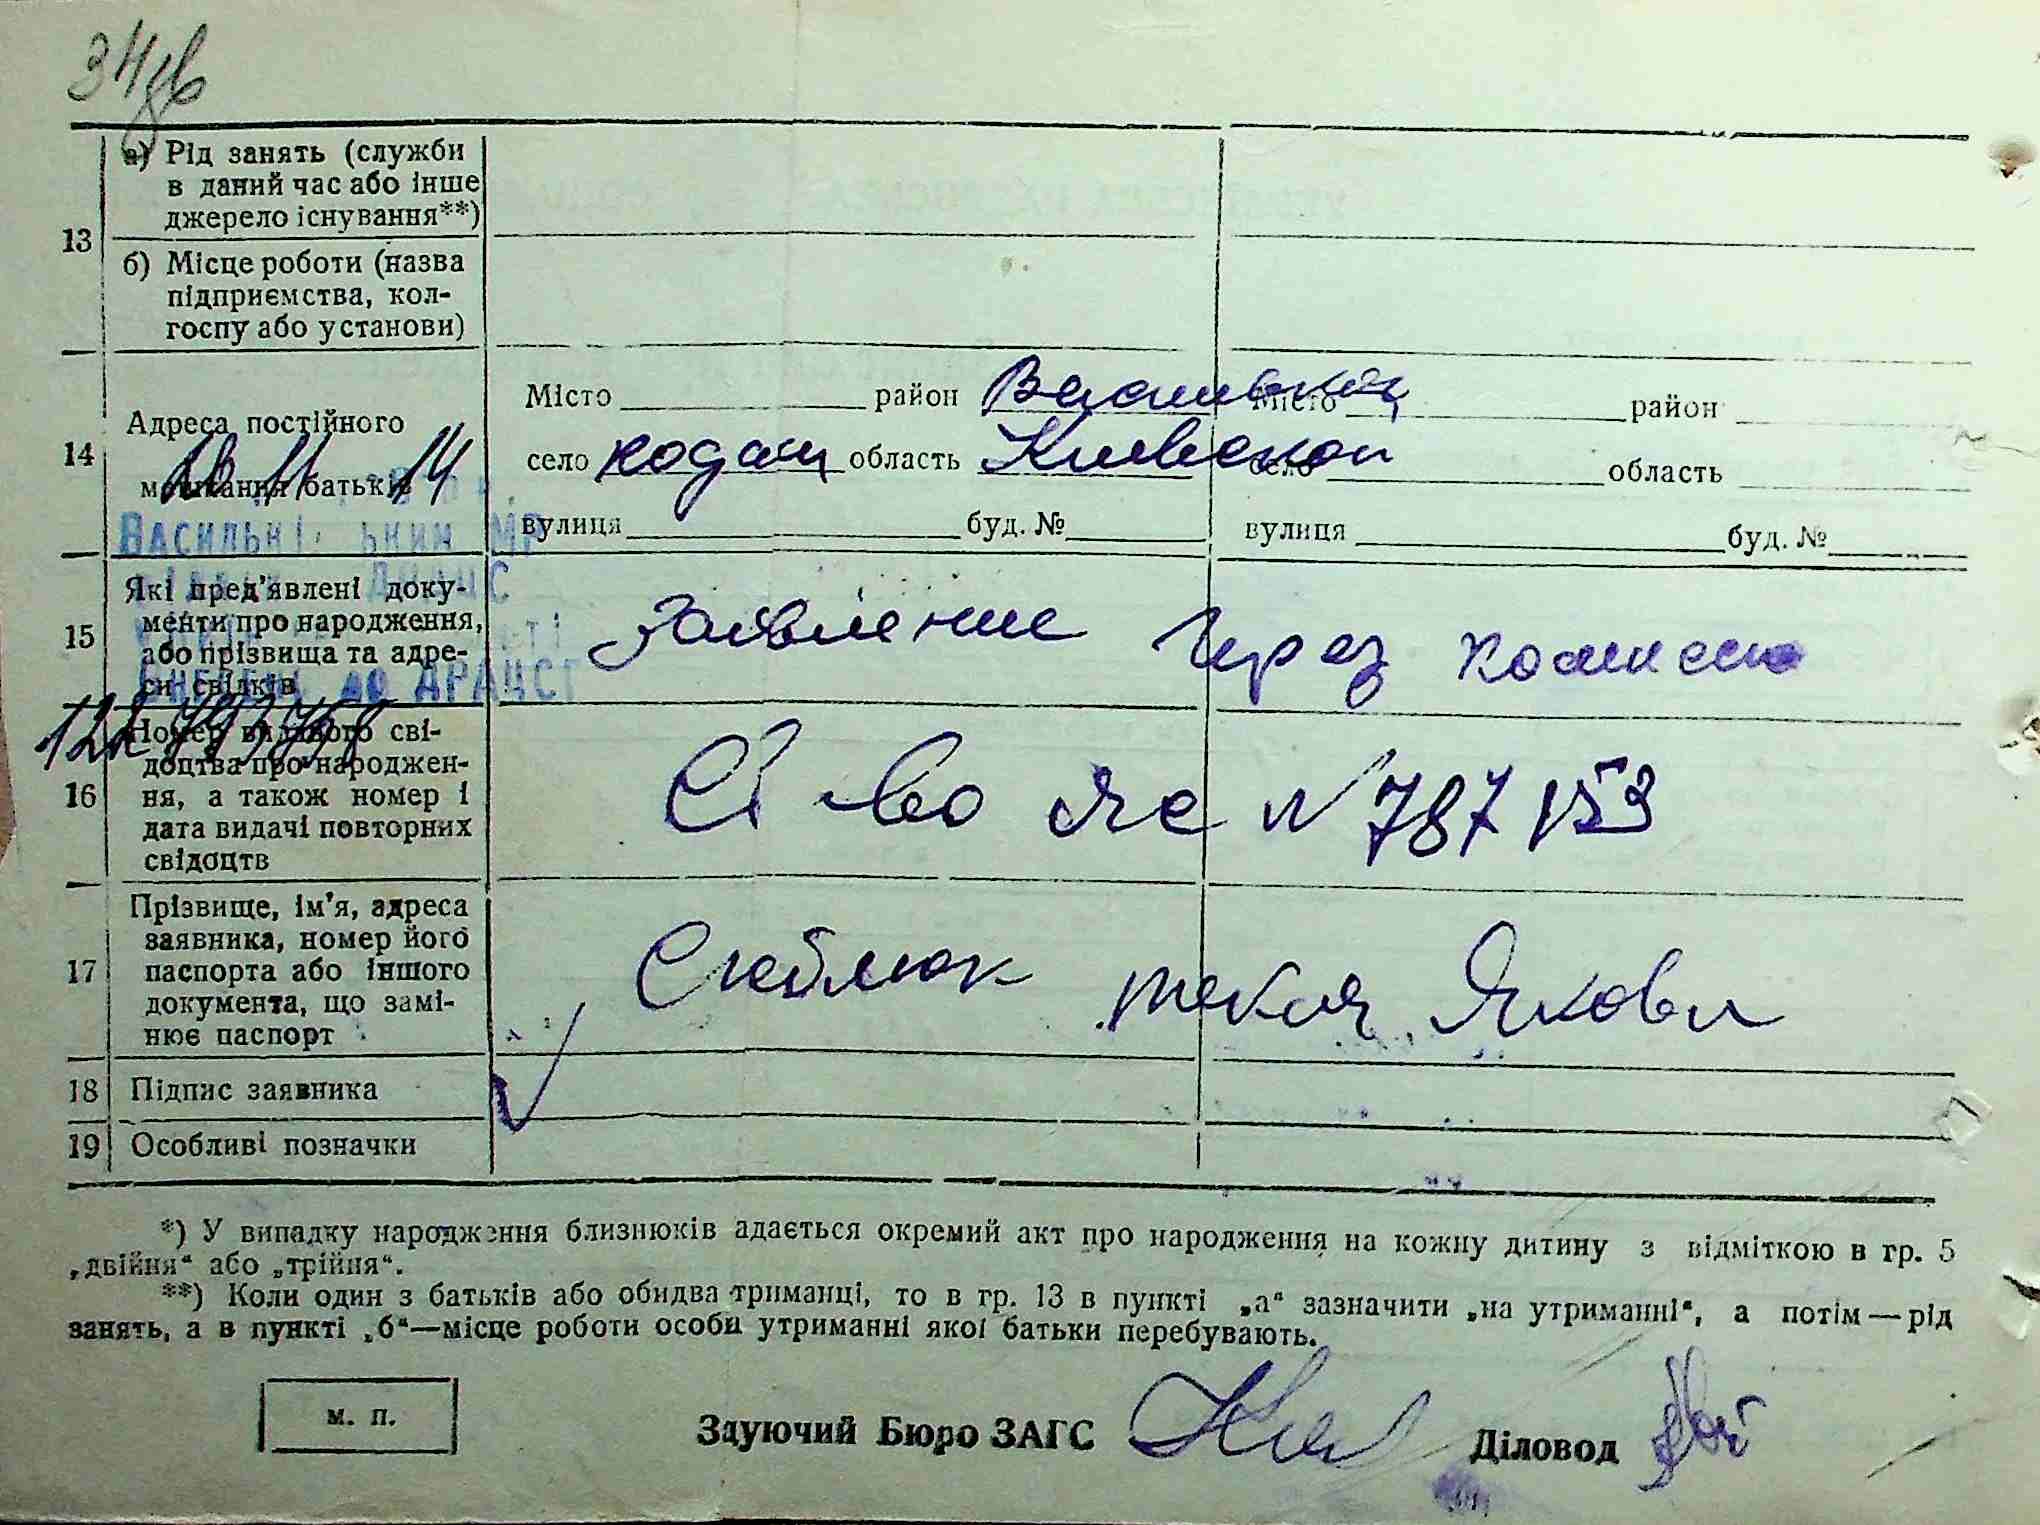 34зв
а) Рід занять (служби
в даний час або інше
джерело існування**)
13
б) Місце роботи (назва
підприємства, кол-
госпу або установи)
14
Адреса постійного
мешкання батьків
Місто район Васильков
село Кодаки область Киевской
вулиця буд. №
Місто район
село область
вулиця буд. №
20 11 14
15
Які пред'явлені доку-
менти про народження,
або прізвища та адре-
си свідків
Заявление Через комиссию
внесено до ДРАЦСГ
122793768
16
Номер виданого сві-
доцтва про народжен-
ня, а також номер і
дата видачі повторних
свідоцтв
Св-во ЯЄ № 787153
17
Прізвище, ім'я, адреса
заявника, номер його
паспорта або іншого
документа, що замі-
нює паспорт
Текля Яковл
18 Підпис заявника
19 Особливі позначки
*) У випадку народження близнюків адається окремий акт про народження на кожну дитину з відміткою в гр. 5
„двійня“ або „трійня“.
**) Коли один з батьків або обидва триманці, то в гр. 13 в пункті „а“ зазначити „на утриманні“, а потім — рід
занять, а в пункті „б“—місце роботи особи утриманні якої батьки перебувають.
м. п.
Здуючий Бюро ЗАГС Діловод